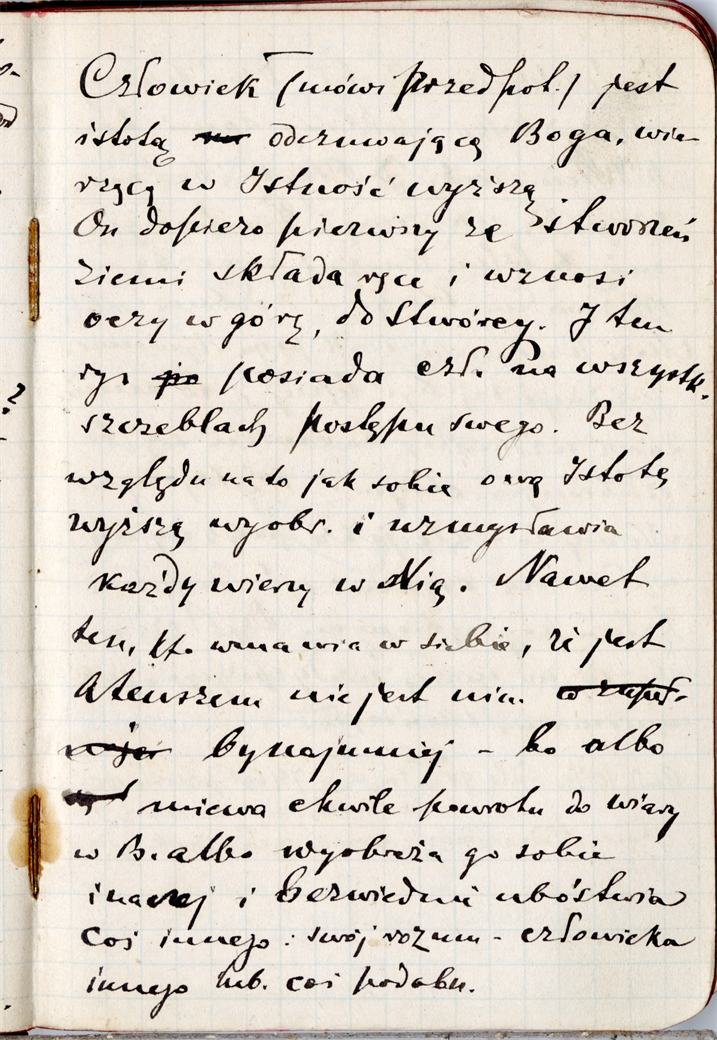 Człowiek (mówi przedpot.) jest
istotą odczuwającą Boga, wie-
rzącą w Istność wyższą
On dopiero pierwszy ze stworzeń
ziemi składa ręce i wznosi
oczy w górę, do Stwórcy. I ten
rys posiada czł. na wszystk.
szczeblach postępu swego. Bez
względu na to jak sobie ową Istotę
wyższą wyobr. i uzmysławia
każdy wierzy w Nią. Nawet
ten, kto wmawia w siebie, że jest
Ateuszem nie jest nim
bynajmniej - bo albo
miewa chwile powrotu do wiary
w B. albo wyobraża go sobie
inaczej i bezwiednie ubóstwia
coś innego: swój rozum - człowieka
innego lub. coś podobn.